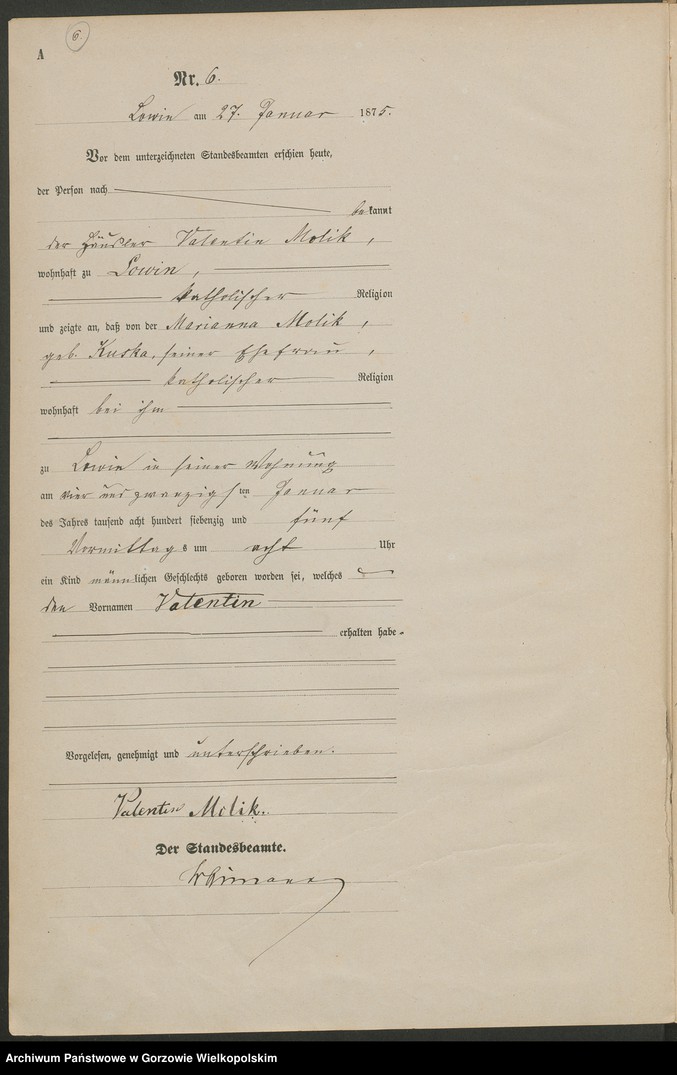 6.
A
Nr. 6.
Lowin am 27. Januar 1875.
Vor dem unterzeichneten Standesbeamten erschien heute,
der Person nach
bekannt
der Häusler Valentin Molik,
wohnhaft zu Lowin,
katholischer Religion
und zeigte an, daß von der Marianna Molik,
geb. Kuska, seiner Ehefrau,
katholischer Religion
wohnhaft bei ihm
zu Lowin in seiner Wohnung
am vier und zwanzigsten Januar
des Jahres tausend acht hundert siebenzig und fünf
Vormittags um acht Uhr
ein Kind männlichen Geschlechts geboren worden sei, welches
den Vornamen Valentin
erhalten habe.
Vorgelesen, genehmigt und unterschrieben.
Valentin Molik.
Der Standesbeamte.
Archiwum Państwowe w Gorzowie Wielkopolskim